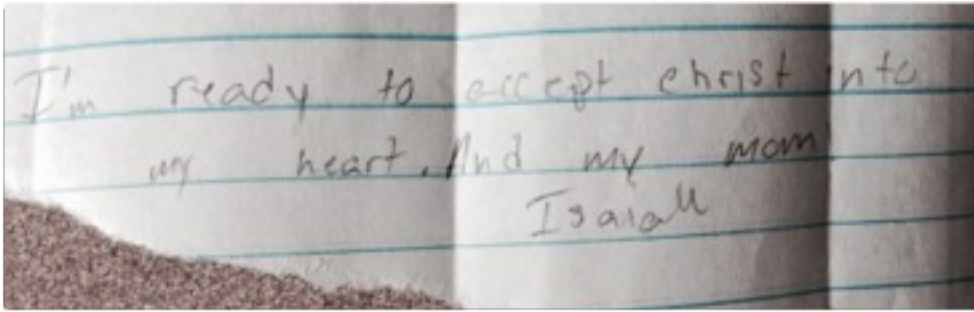 I'm ready to accept christ into
my heart. And my mom
Isaiah